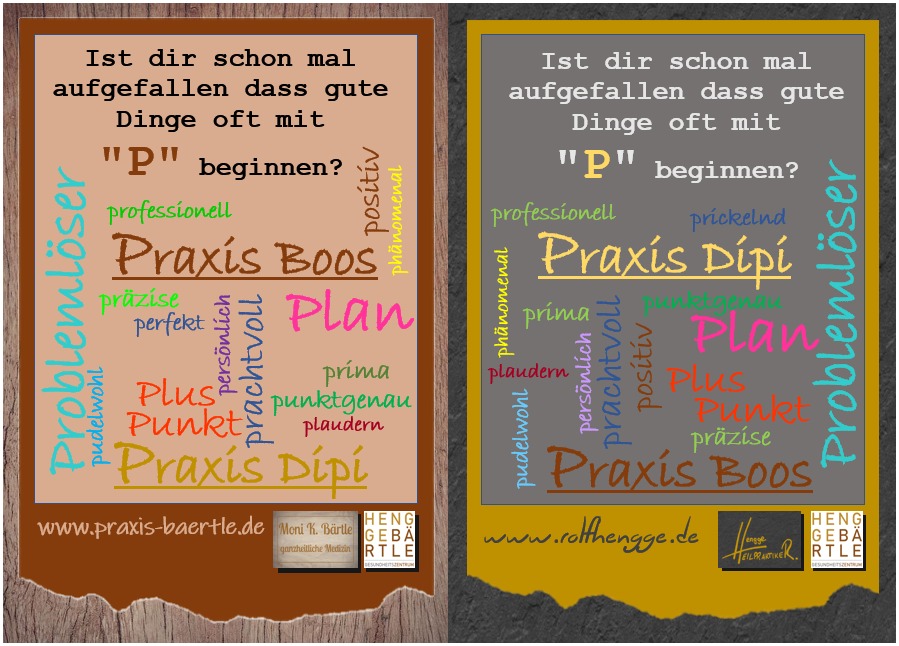 Ist dir schon mal
aufgefallen dass gute
Dinge oft mit
"P" beginnen?
Problemlöser
professionell
positiv
phänomenal
Praxis Boos
präzise
perfekt
persönlich
prachtvoll
Plan
prima
punktgenau
plaudern
pudelwohl
Plus
Punkt
Praxis Dipi
www.praxis-baertle.de
Moni K. Bärtle
ganzheitliche Medizin
HENG
GEBÄ
RTLE
GESUNDHEITSZENTRUM
Ist dir schon mal
aufgefallen dass gute
Dinge oft mit
"P" beginnen?
professionell
prickelnd
Problemlöser
Praxis Dipi
phänomenal
prima
punktgenau
Plan
persönlich
prachtvoll
positiv
plaudern
Plus
Punkt
pudelwohl
präzise
Praxis Boos
www.rolfhengge.de
Hengge
HEILPRAKTIKER.
HENG
GEBÄ
RTLE
GESUNDHEITSZENTRUM